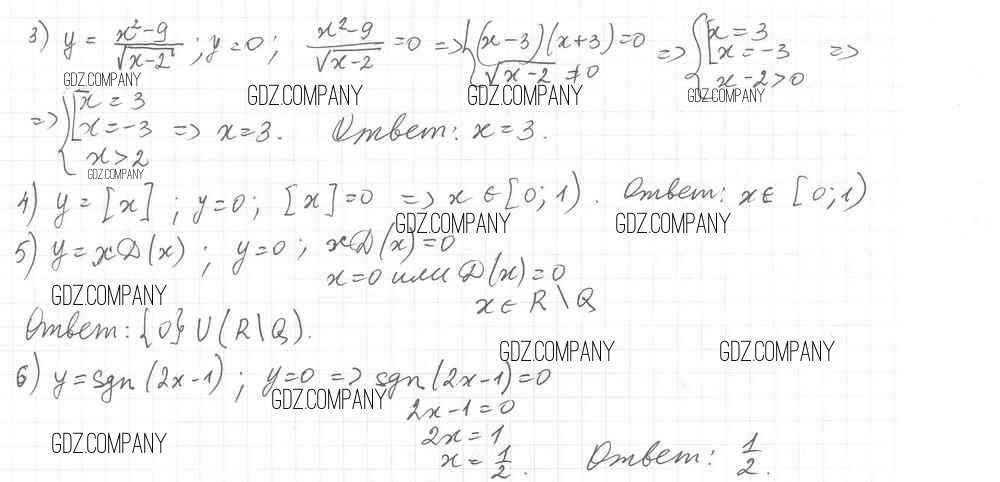 3) y = (x²-9)/√(x-2) ; y=0; (x²-9)/√(x-2) =0 => { (x-3)(x+3)=0 √(x-2) ≠0 => { [ x=3 x=-3 x-2>0 =>
GDZ.COMPANY
GDZ.COMPANY GDZ.COMPANY GDZ.COMPANY
=> { [ x=3 x=-3 x>2 => x=3. Ответ: x=3.
GDZ.COMPANY
4) y=[x] ; y=0; [x]=0 => x∈[0;1). Ответ: x∈ [0;1)
GDZ.COMPANY GDZ.COMPANY
5) y=xD(x) ; y=0; xD(x)=0
x=0 или D(x)=0
GDZ.COMPANY
x∈ R\Q
Ответ: {0}∪(R\Q).
GDZ.COMPANY GDZ.COMPANY
6) y=sgn(2x-1) ; y=0 => sgn(2x-1)=0
GDZ.COMPANY
2x-1=0
2x=1
GDZ.COMPANY
x= 1/2. Ответ: 1/2.